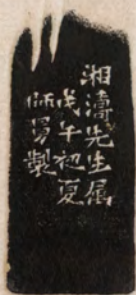 湘濤先生属
戊午初夏
師曼製